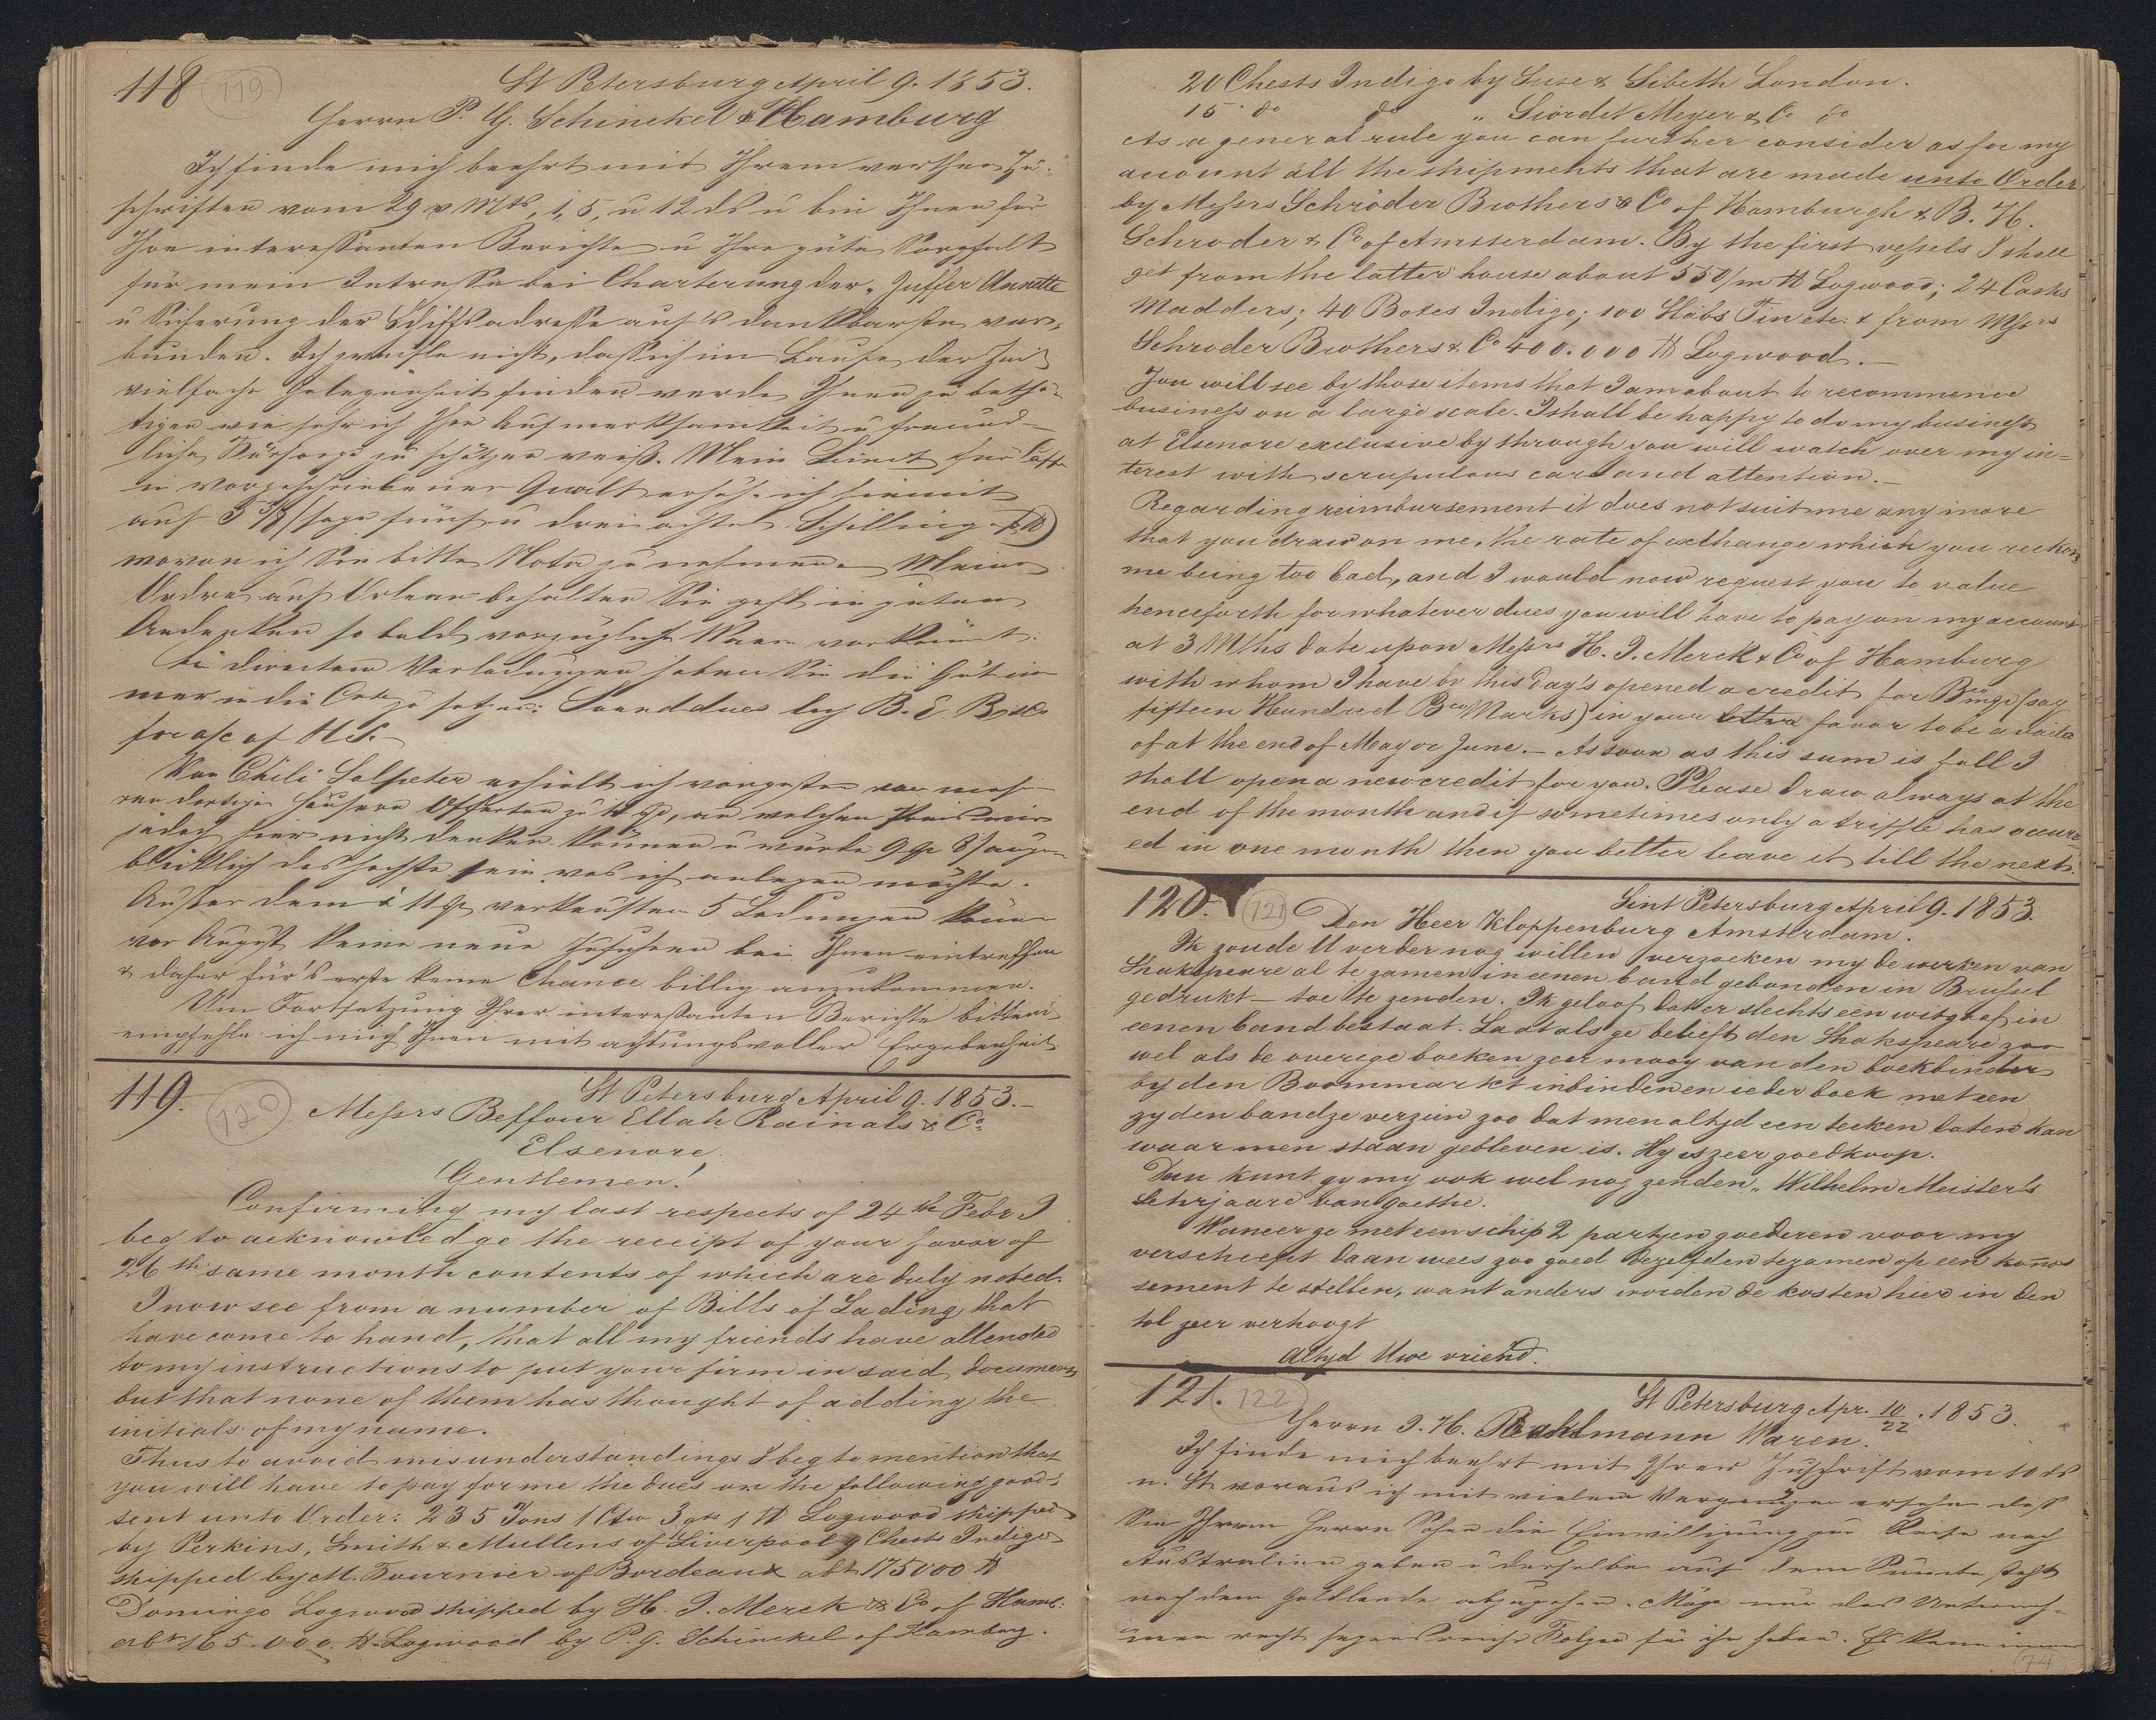 118 119
St Petersburg April 9. 1853.
Herrn P. G. Schinckel Hamburg
Ich finde mich beehrt mit Ihrem werthen Zu-
schriften vom 29 v Mts, 1, 5, u 12 ds u bin Ihnen für
Ihre interessanten Berichte u Ihre gute Sorgfalt
für mein Interesse bei Charterung der „Juffer Annette
u Sicherung der Schiffsadresse auf's dankbarste ver-
bunden. Ich zweifle nicht, dass ich im Laufe der Zeit
vielfache Gelegenheit finden werde Ihnen zu bethä-
tigen wie sehr ich Ihre Aufmerksamkeit u freund-
liche Fürsorge zu schätzen weiß. Mein Limit für
in vorgeschriebener Qualit erhöhe ich hiemit
auf 5 3/8 (sage fünf u drei achtel Schilling p ℔)
wovon ich Sie bitte Nota zu nehmen. Meine
Ordre auf Orlean behalten Sie gefl in gutem
Andenken so bald vorzügliche Waare vorkömmt.
Bei directen Verladungen haben Sie die Güte im-
mer in die Cote zu setzen: Sounddues by B. E. R & Co
for a/c of H S.
Von Chili Salpeter erhielt ich vorgestern von mehre-
ren dortigen Häusern Offerten zu 11, an welchen Preis wir
jedoch hier nicht denken können u würde 9 augen-
blicklich das höchste sein was ich anlegen möchte.
Außer dem à 11 verkauften 5 Ladungen können
vor August keine neue Zufuhren bei Ihnen eintreffen
& daher für's erste keine Chance billig anzukommen.
Um Fortsetzung Ihrer interessanten Berichte bittend
empfehle ich mich Ihnen mit achtungsvoller Ergebenheit
119. 120
St Petersburg April 9. 1853.–
Messrs Beffour Ellah Rainals & Co
Elsenore.
Gentlemen!
Confirming my last respects of 24th Febr I
beg to acknowledge the receipt of your favor of
26th same month contents of which are duly noted.
I now see from a number of Bills of Lading, that
have come to hand, that all my friends have attended
to my instructions to put your firm in said documents
but that none of them has thought of adding the
initials of my name.
Thus to avoid misunderstandings I beg to mention that
you will have to pay for me the dues on the following goods
sent unto Order: 235 Tons 1 Ctw 3 qts 1 ℔ Logwood shipped
by Perkins, Smith & Mullens of Liverpool 9 Chests Indigo
shipped by M. Fournier of Bordeaux abt 175000 ℔
Domingo Logwood shipped by H. J. Merck & Co of Hamb:
abt 165.000. ℔ Logwood by P. G. Schinckel of Hamburg.
20 Chests Indigo by Suse & Sibeth London.
15 do do „ Giordet Meyer & Co do
As a general rule you can further consider as for my
account all the shipments that are made unto Order
by Messrs Schröder Brothers & Co of Hamburgh & B. H.
Schroder & Co of Amsterdam. By the first vessels I shall
get from the latter house about 550/m ℔ Logwood; 24 Casks
Madders; 40 Boxes Indigo; 100 Slabs Tin etc. & from Messrs
Schroder Brothers & Co 400.000 ℔ Logwood.–
You will see by those items that I am about to recommence
business on a large scale. I shall be happy to do my business
at Elsenore exclusive by through you will watch over my in-
terest with scrupulous care and attention.–
Regarding reimbursement it does not suit me any more
that you draw on me, the rate of exchange which you reckon
me being too bad, and I would now request you to value
henceforth for whatever dues you will have to pay on my account
at 3 Mths date upon Messrs H. J. Merck & Co of Hamburg
with whom I have by this day's opened a credit for (say
fifteen Hundred Bco Marks) in your favor to be availd
of at the end of May or June.– As soon as this sum is full I
shall open a new credit for you. Please draw always at the
end of the month and if sometimes only a triffle has occurr-
ed in one month then you better leave it till the next.
120. 121
Sint Petersburg April 9. 1853.
Den Heer Kloppenburg Amsterdam.
Ik zoude U verder nog willen verzoeken my de werken van
Shakspeare al te zamen in eenen band gebonden in Brussel
gedrukt – toe te zenden. Ik geloof dat er slechts een witgaaf in
eenen band bestaat. Laat als ge belieft den Shakspeare zoo
wel als de overige boeken zeer mooy van den boekbinder
by den Boommarkt inbinden en ieder boek met een
zyden bandze verzien zoo dat men altyd een teeken laten kan
waar men staan gebleven is. Hy is zeer goedkoop.
Dan kunt gy my ook wel nog zenden „Wilhelm Meisters
Lehrjaare van Goethe.
Waneer ge met een schip 2 partyen goederen voor my
verscheept daan wees zoo goed dezelfden tezamen op een konnos
sement te stellen, want anders worden de kosten hier in den
tol zeer verhoogt
Altyd Uwe vriend.
121. 122
St Petersburg Apr. 10/22. 1853.
Herrn J. H. Bahlmann Waren.
Ich finde mich beehrt mit Ihrer Zuschrift vom 10 ds
n. St. woraus ich mit vielem Vergnügen ersehe dass
Sie Ihrem Herrn Sohne die Einwilligung zur Reise nach
Australien gaben u derselbe auf dem Puncte steht
nach dem Goldlande abzugehen. Möge nur das Unterneh-
men recht segensreiche Folgen für ihn haben. Es kann immer
74